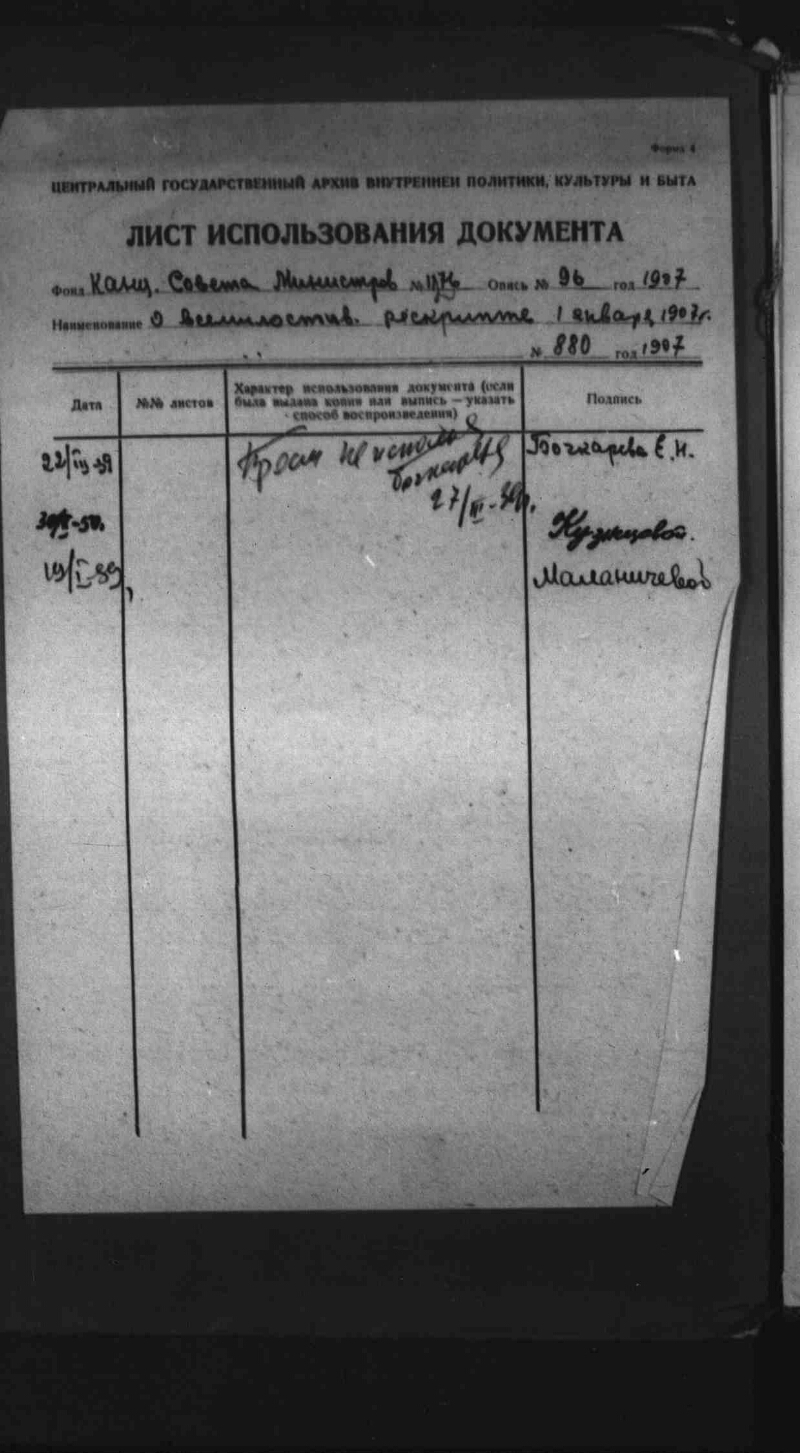 Форма 4
ЦЕНТРАЛЬНЫЙ ГОСУДАРСТВЕННЫЙ АРХИВ ВНУТРЕННЕЙ ПОЛИТИКИ, КУЛЬТУРЫ И БЫТА
ЛИСТ ИСПОЛЬЗОВАНИЯ ДОКУМЕНТА
Фонд Канц. Совета Министров № Опись № 96 год 1907
Наименование О всемилостив. рескрипте 1 января 1907 г.
№ 880 год 1907
Дата №№ листов Характер использования документа (если была выдана копия или выпись — указать способ воспроизведения) Подпись
Бочкарева Е.И.
Кузнецовой.
19/I-89,